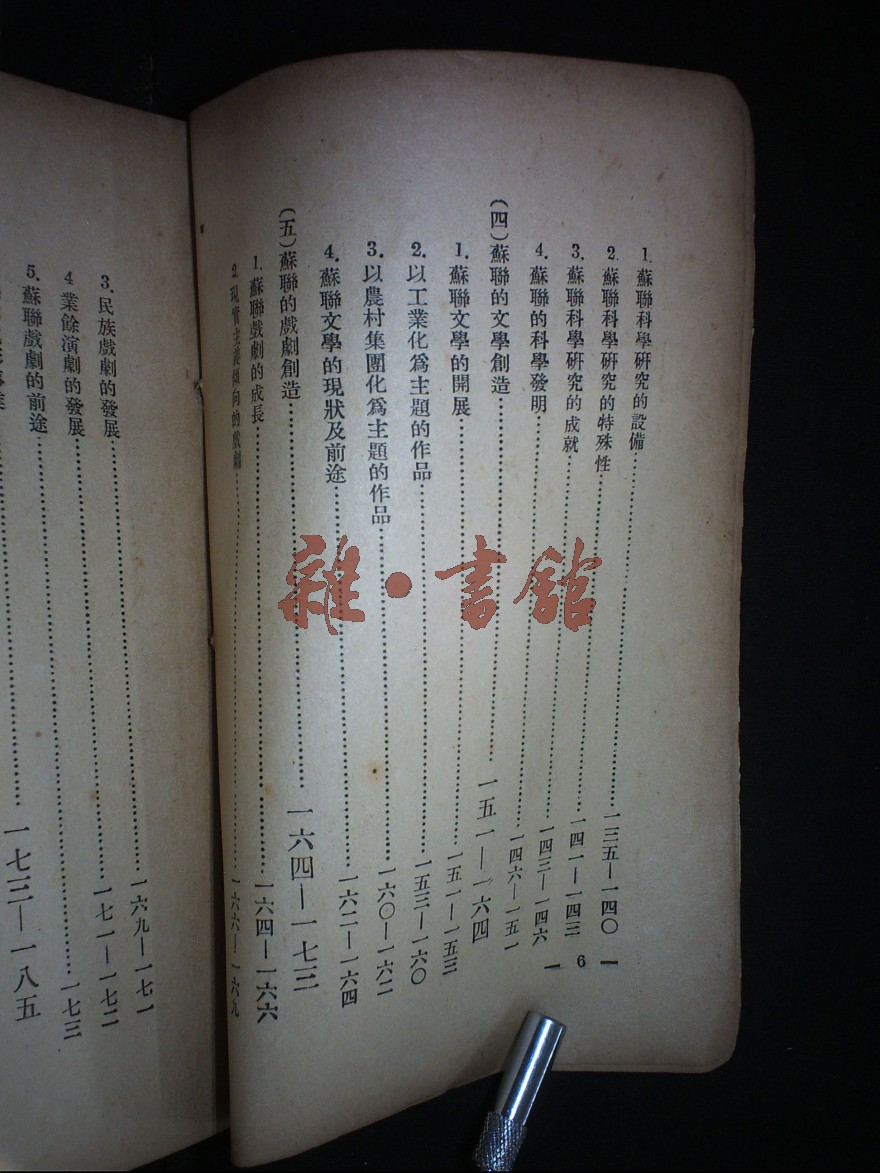 1. 蘇聯科學研究的設備……一三五—一四〇
2. 蘇聯科學研究的特殊性……一四一—一四三
3. 蘇聯科學研究的成就……一四三—一四六
4. 蘇聯的科學發明……一四六—一五一
(四)蘇聯的文學創造……一五一—一六四
1. 蘇聯文學的開展……一五一—一五三
2. 以工業化爲主題的作品……一五三—一六〇
3. 以農村集團化爲主題的作品……一六〇—一六二
4. 蘇聯文學的現狀及前途……一六二—一六四
(五)蘇聯的戲劇創造……一六四—一七三
1. 蘇聯戲劇的成長……一六四—一六六
2. 現實主義傾向的戲劇……一六六—一六九
— 6 —
3. 民族戲劇的發展……一六九—一七一
4 業餘演劇的發展……一七一—一七二
5. 蘇聯戲劇的前途……一七三
一七三—一八五
雜·書館